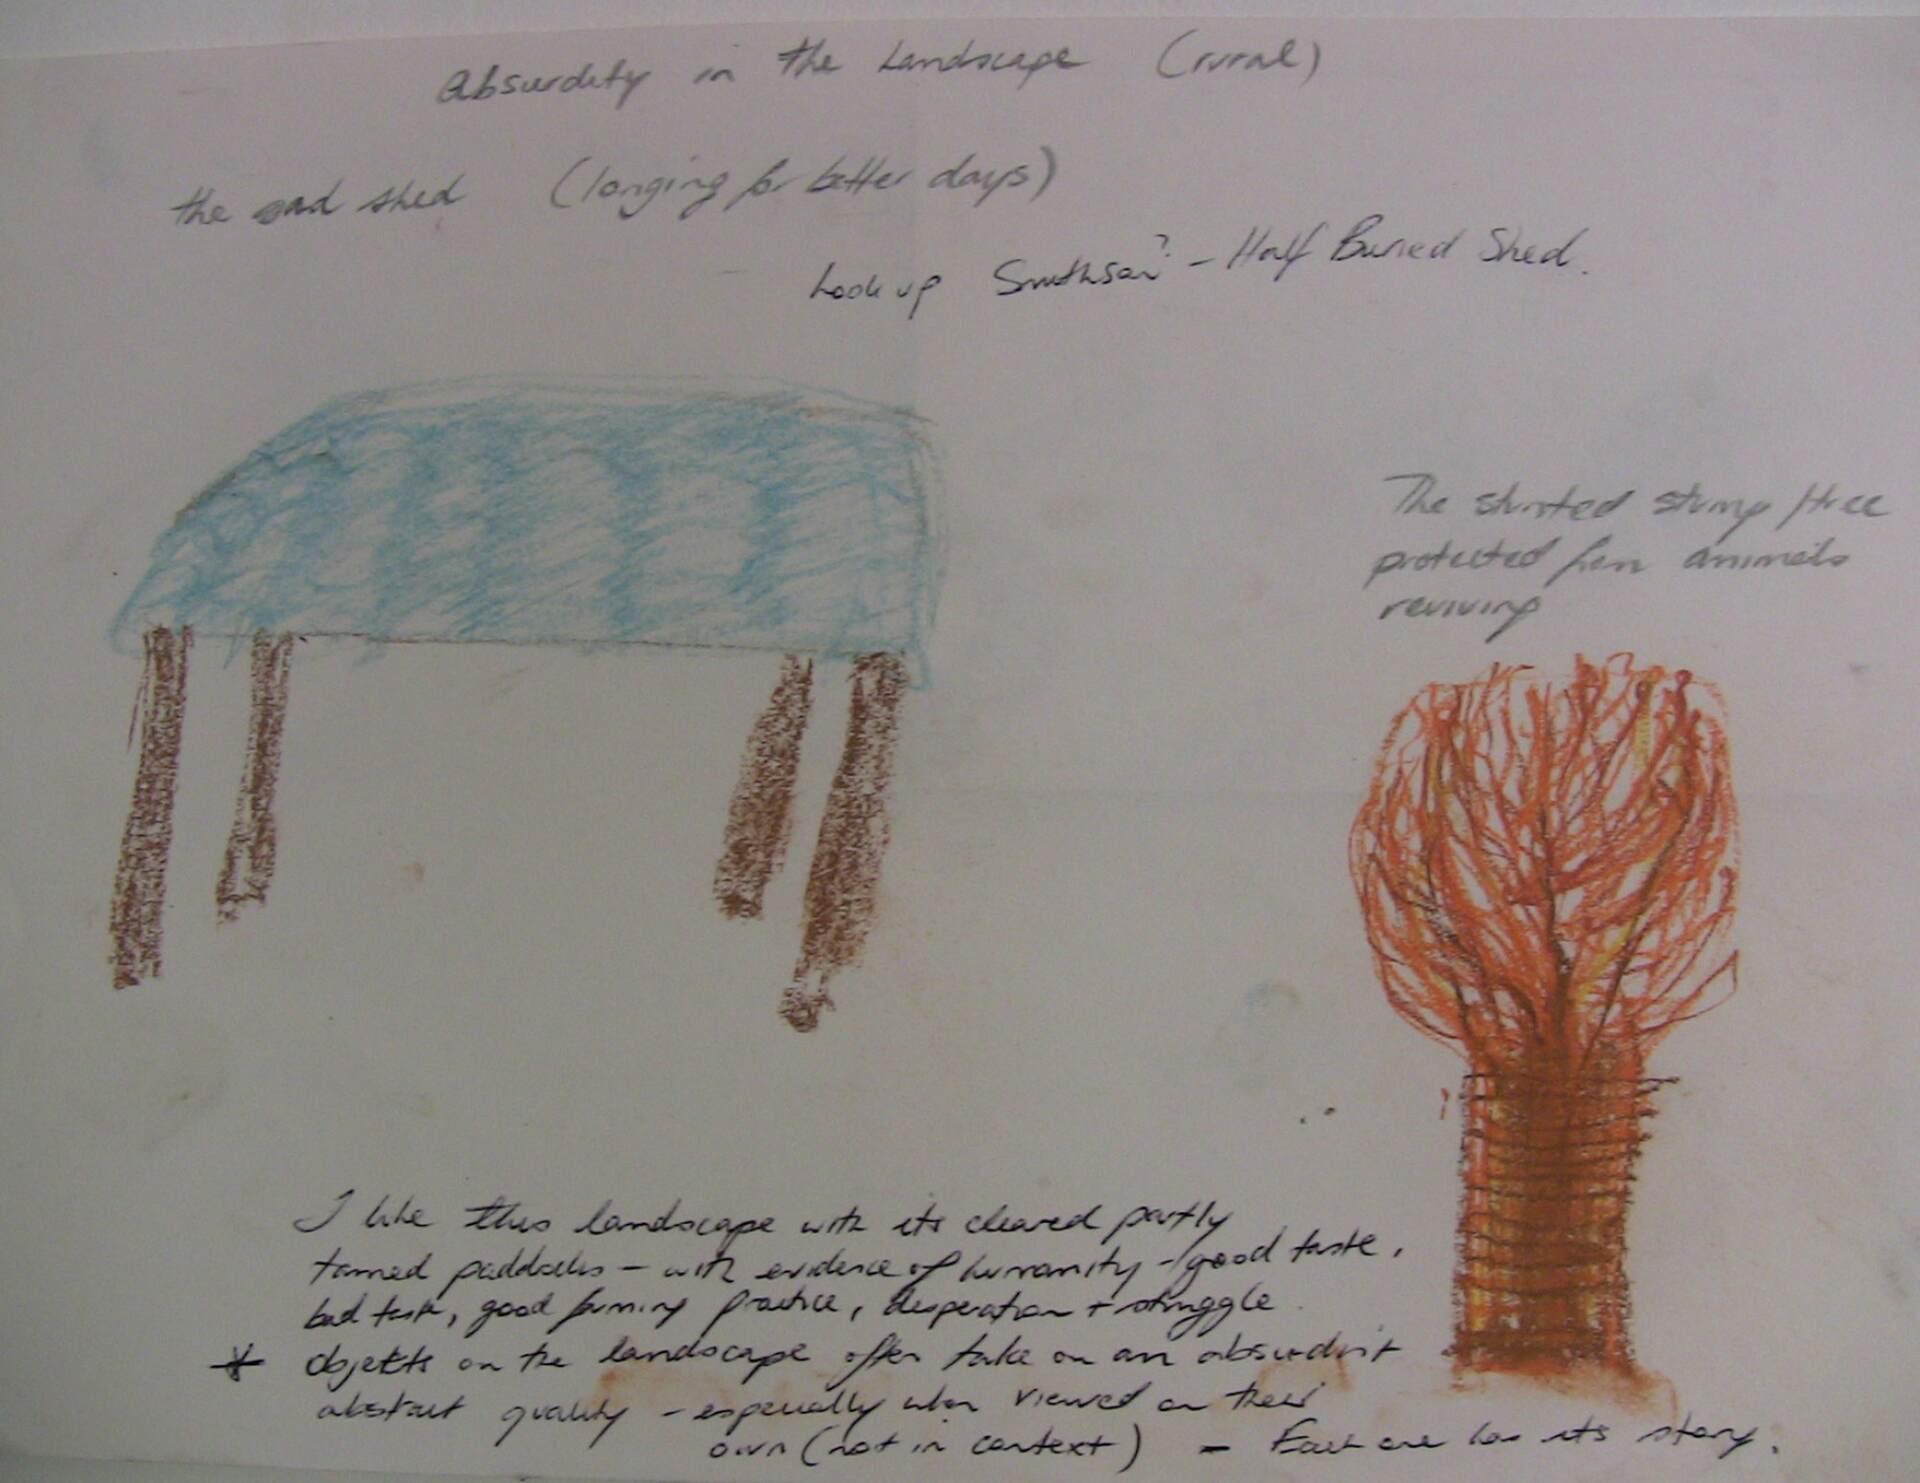 Absurdity in the Landscape (rural)
the sad shed (longing for better days)
Look up Smithson? - Half Buried Shed.
The stunted stump/tree
protected from animals
reviving
I like this landscape with its cleared partly
tamed paddocks - with evidence of humanity - good taste,
bad taste, good farming practice, desperation + struggle.
* objects on the landscape often take on an absurdist
abstract quality - especially when viewed on their
own (not in context) - Each one has its story.